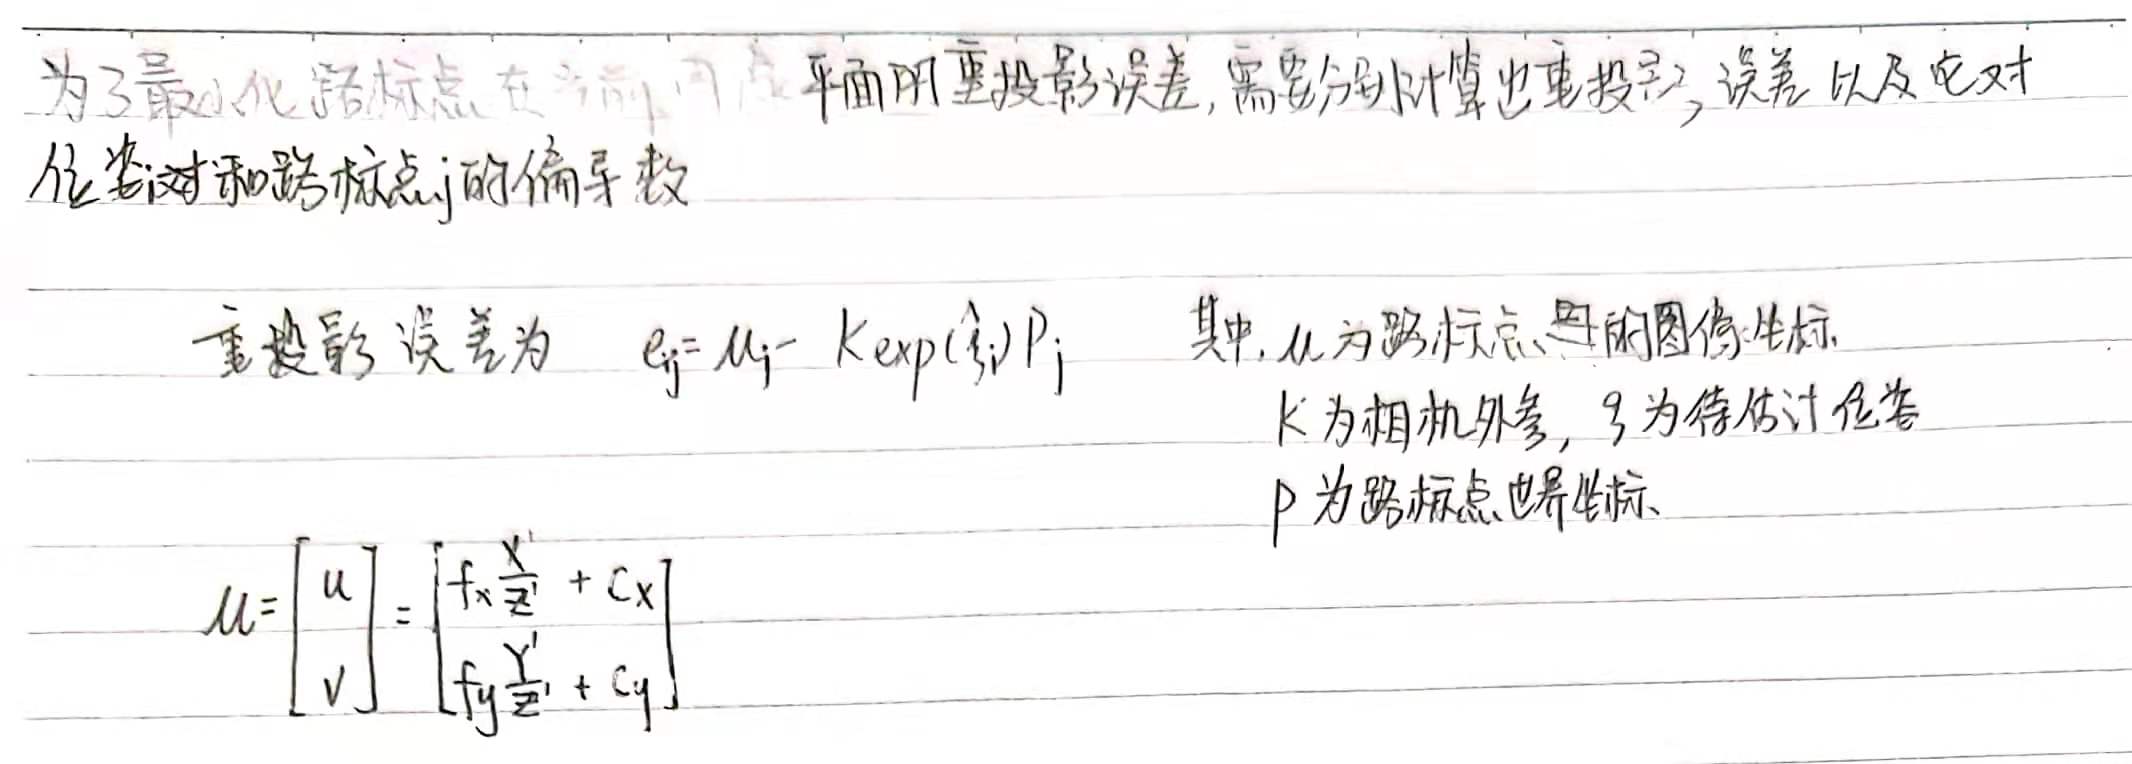 为了最小化路标点在当前平面的重投影误差,需要分别计算出重投影误差以及它对
位姿i对和路标点j的偏导数
重投影误差为 eij = μj - K exp(ξ^i) Pj 其中, μ为路标点的图像坐标
K为相机外参, ξ为待估计位姿
P为路标点世界坐标
μ = [u v] = [fx X'/Z' + Cx fy Y'/Z' + Cy]